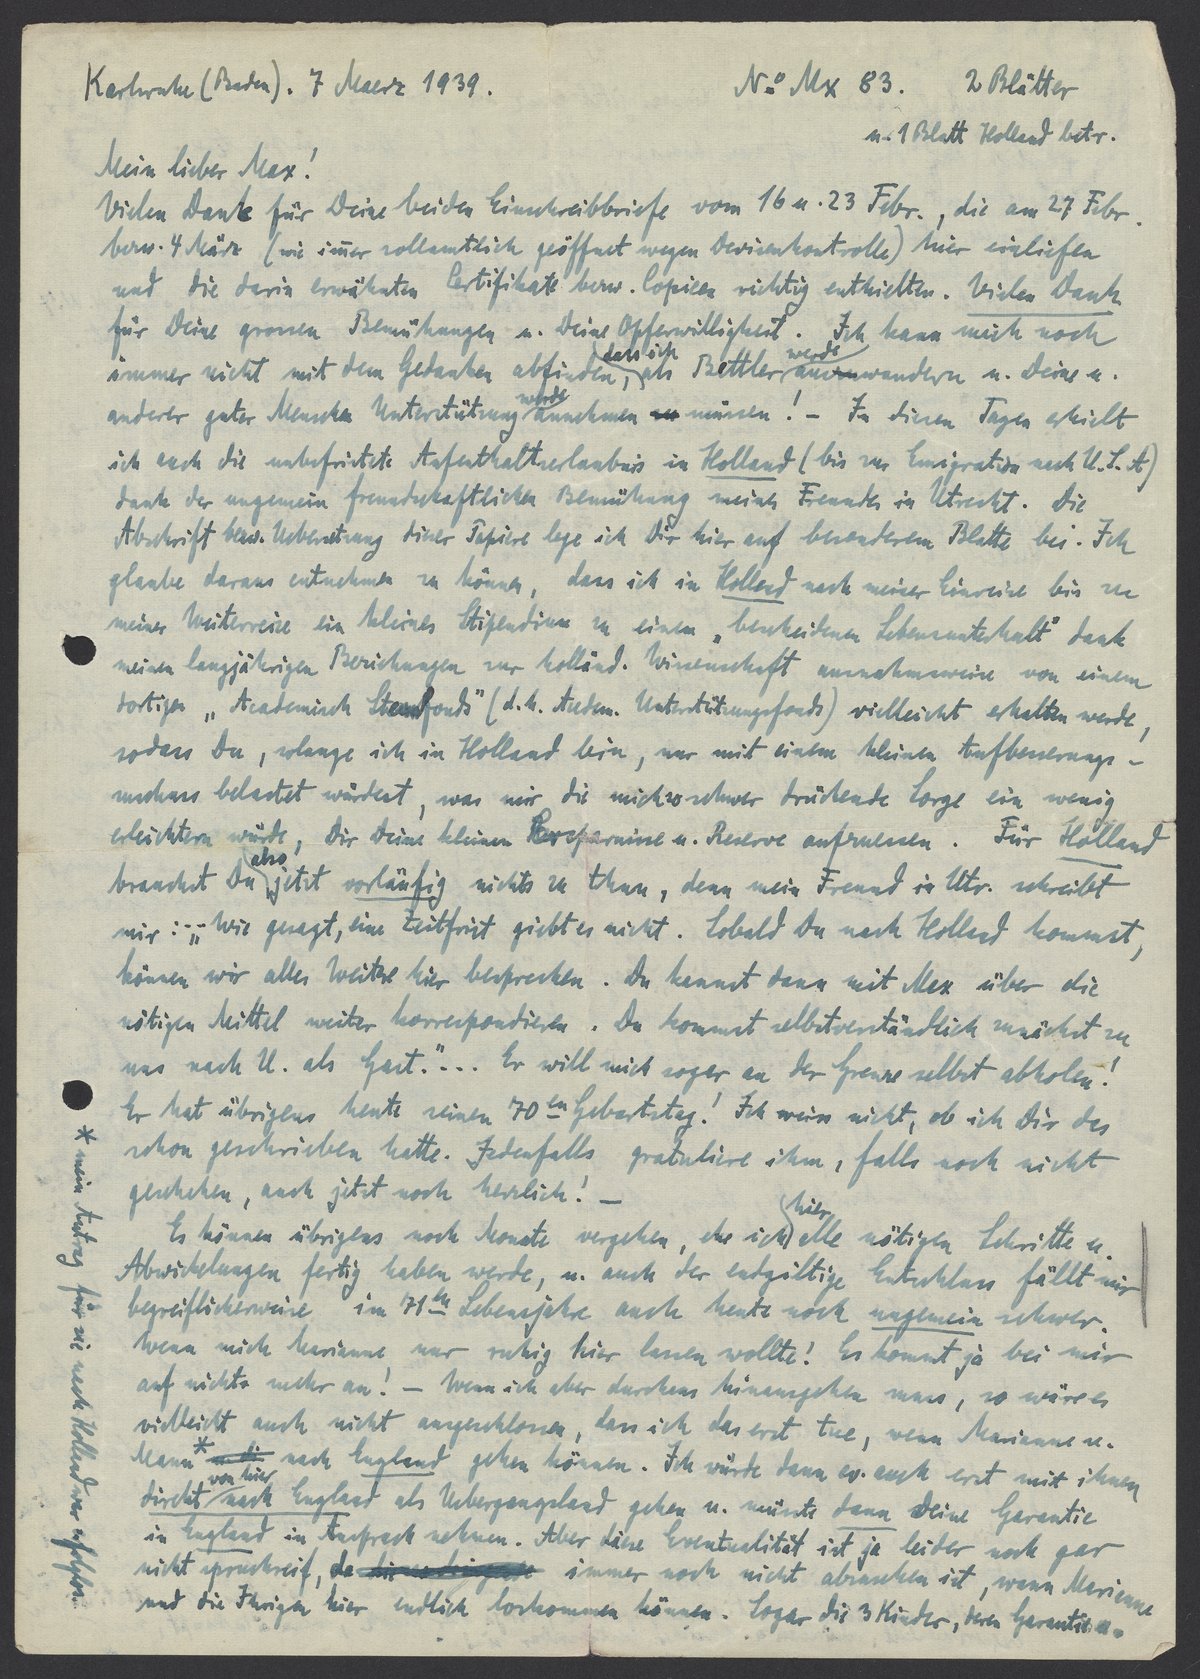 Karlsruhe (Baden). 7 Maerz 1939.
No Mx 83. 2 Blätter
u. 1 Blatt Holland betr.
Mein lieber Max!
Vielen Dank für Deine beiden Einschreibbriefe vom 16 u. 23 Febr., die am 27 Febr.
bezw. 4 März (wie immer zollamtlich geöffnet wegen Devisenkontrolle) hier einliefen
und die darin erwähnten Certifikate bezw. Copieen richtig enthielten. Vielen Dank
für Deine grossen Bemühungen u. Deine Opferwilligkeit. Ich kann mich noch
immer nicht mit dem Gedanken abfinden, dass ich als Bettler auswandern werde u. Deine u.
anderer guter Menschen Unterstützung werde annehmen müssen! – In diesen Tagen erhielt
ich auch die unbefristete Aufenthaltserlaubnis in Holland (bis zur Emigration nach U.S.A)
dank der ungemein freundschaftlichen Bemühung meines Freundes in Utrecht. Die
Abschrift bezw. Uebersetzung dieser Papiere lege ich Dir hier auf besonderem Blatte bei. Ich
glaube daraus entnehmen zu können, dass ich in Holland nach meiner Einreise bis zu
meiner Weiterreise ein kleines Stipendium zu einem „bescheidenen Lebensunterhalt" dank
meinen langjährigen Beziehungen zur holländ. Wissenschaft ausnahmsweise von einem
dortigen „Academisch Steunfonds" (d.h. Akadem. Unterstützungsfonds) vielleicht erhalten werde,
sodass Du, solange ich in Holland bin, nur mit einem kleinen Aufbesserungs-
zuschuss belastet würdest, was mir die mich so schwer drückende Sorge ein wenig
erleichtern würde, Dir Deine kleinen Ersparnisse u. Reserve aufzuessen. Für Holland
brauchst Du also jetzt vorläufig nichts zu thun, denn mein Freund in Utr. schreibt
mir: ... „Wie gesagt, eine Zeitfrist giebt es nicht. Sobald Du nach Holland kommst,
können wir alles Weitre hier besprechen. Du kannst dann mit Max über die
nötigen Mittel weiter korrespondieren. Du kommst selbstverständlich zunächst zu
uns nach U. als Gast." ... Er will mich sogar an der Grenze selbst abholen!
Er hat übrigens heute seinen 70en Geburtstag! Ich weiss nicht, ob ich Dir das
schon geschrieben hatte. Jedenfalls gratuliere ihm, falls noch nicht
geschehen, auch jetzt noch herzlich! –
Es können übrigens noch Monate vergehen, ehe ich hier alle nötigen Schritte u.
Abwickelungen fertig haben werde, u. auch der endgültige Entschluss fällt mir
begreiflicherweise im 71en Lebensjahre auch heute noch ungemein schwer.
Wenn mich Marianne nur ruhig hier lassen wollte! Es kommt ja bei mir
auf nichts mehr an! – Wenn ich aber durchaus hinausgehen muss, so wäre es
vielleicht auch nicht ausgeschlossen, dass ich das erst tue, wenn Marianne u.
Mann* nach England gehen können. Ich würde dann ev. auch erst mit ihnen
direkt von hier nach England als Uebergangsland gehen u. müsste dann Deine Garantie
in England in Anspruch nehmen. Aber diese Eventualität ist ja leider noch gar
nicht spruchreif, da immer noch nicht abzusehen ist, wann Marianne
und die Ihrigen hier endlich loskommen können. Sogar die 3 Kinder, deren Garantie u.
* mein Antrag für sie nach Holland war erfolglos.